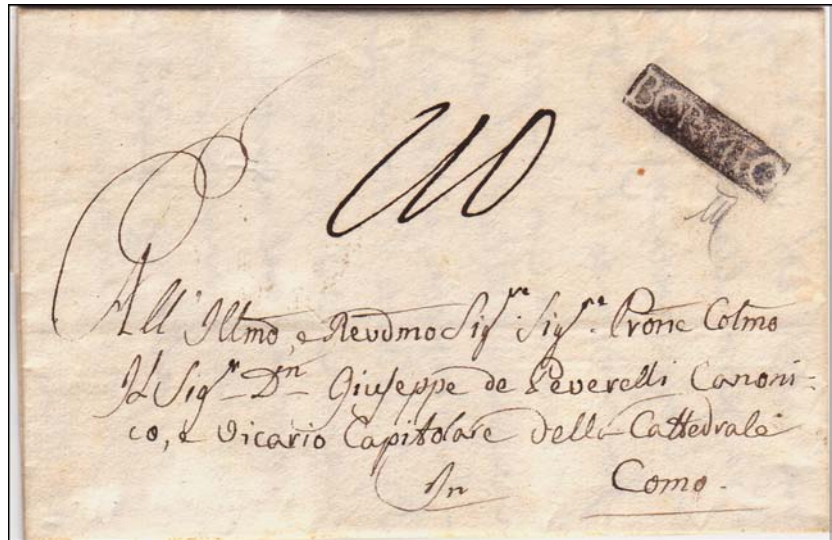 BORMIO
All' Illmo, e Revdmo Sigre. Sigre. Prone Colmo
Il Sigr. Dn Giuseppe de Peverelli Canoni=
co, e Vicario Capitolare della Cattedrale
In Como.